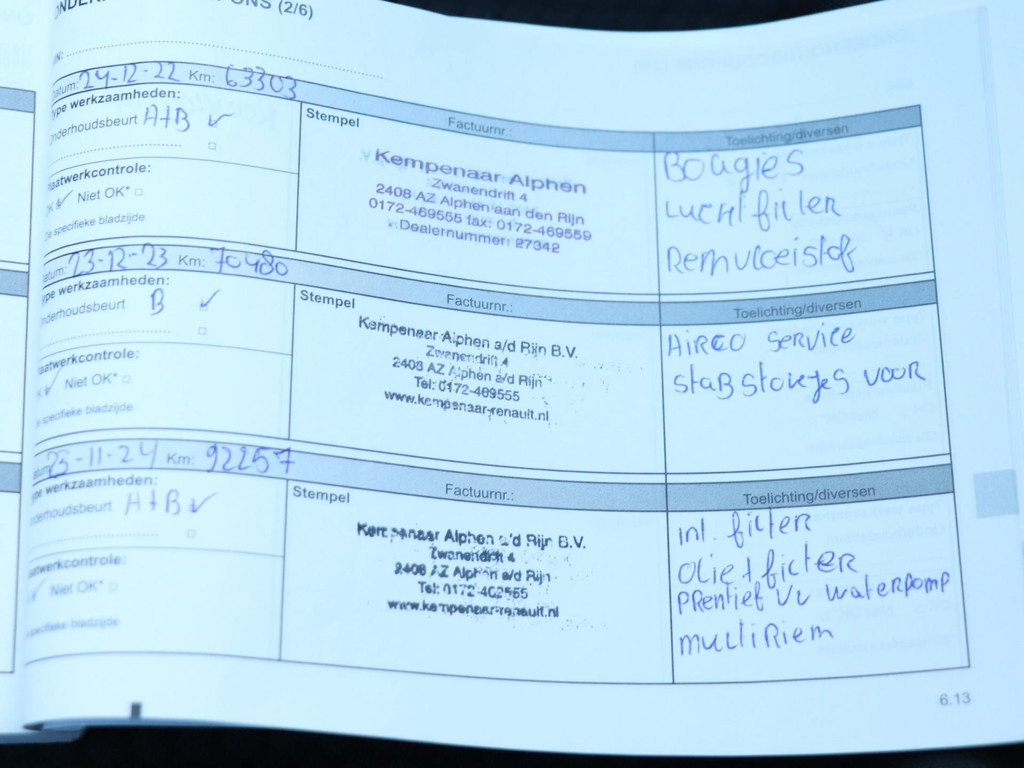 ONS (2/6)
Datum: 24-12-22 Km: 63303
Type werkzaamheden:
Onderhoudsbeurt A+B ✓
Stempel
Factuurnr.:
Toelichting/diversen
Kempenaar Alphen
Zwanendrift 4
2408 AZ Alphen aan den Rijn
0172-469555 fax: 0172-469559
Dealernummer: 27342
Bougies
Luchtfilter
Remvloeistof
aatwerkcontrole:
OK ✓ Niet OK*
Zie specifieke bladzijde
Datum: 23-12-23 Km: 70480
Type werkzaamheden:
Onderhoudsbeurt B ✓
Stempel
Factuurnr.:
Toelichting/diversen
Kempenaar Alphen a/d Rijn B.V.
Zwanendrift 4
2408 AZ Alphen a/d Rijn
Tel: 0172-469555
www.kempenaar-renault.nl
Airco service
stabstokjes voor
aatwerkcontrole:
OK ✓ Niet OK*
Zie specifieke bladzijde
Datum: 25-11-24 Km: 92257
Type werkzaamheden:
Onderhoudsbeurt A+B ✓
Stempel
Factuurnr.:
Toelichting/diversen
Kempenaar Alphen a/d Rijn B.V.
Zwanendrift 4
2408 AZ Alphen a/d Rijn
www.kempenaar-renault.nl
int. filter
olie + filter
prentief vv waterpomp
multiriem
aatwerkcontrole:
✓ Niet OK*
specifieke bladzijde
6.13